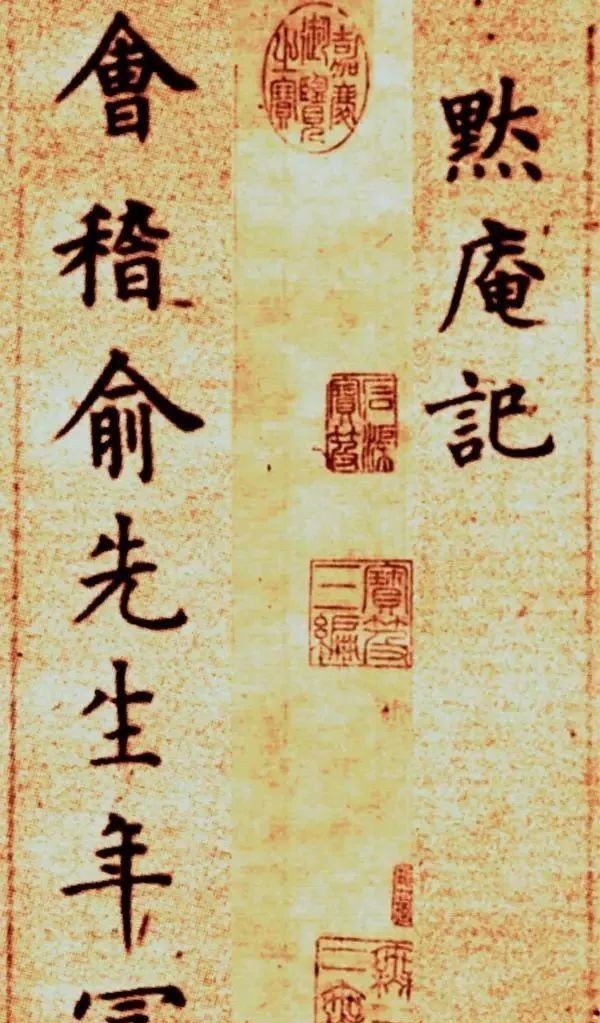 默庵記
嘉慶御覽之寶
石渠寶笈
寶笈三編
會稽俞先生年